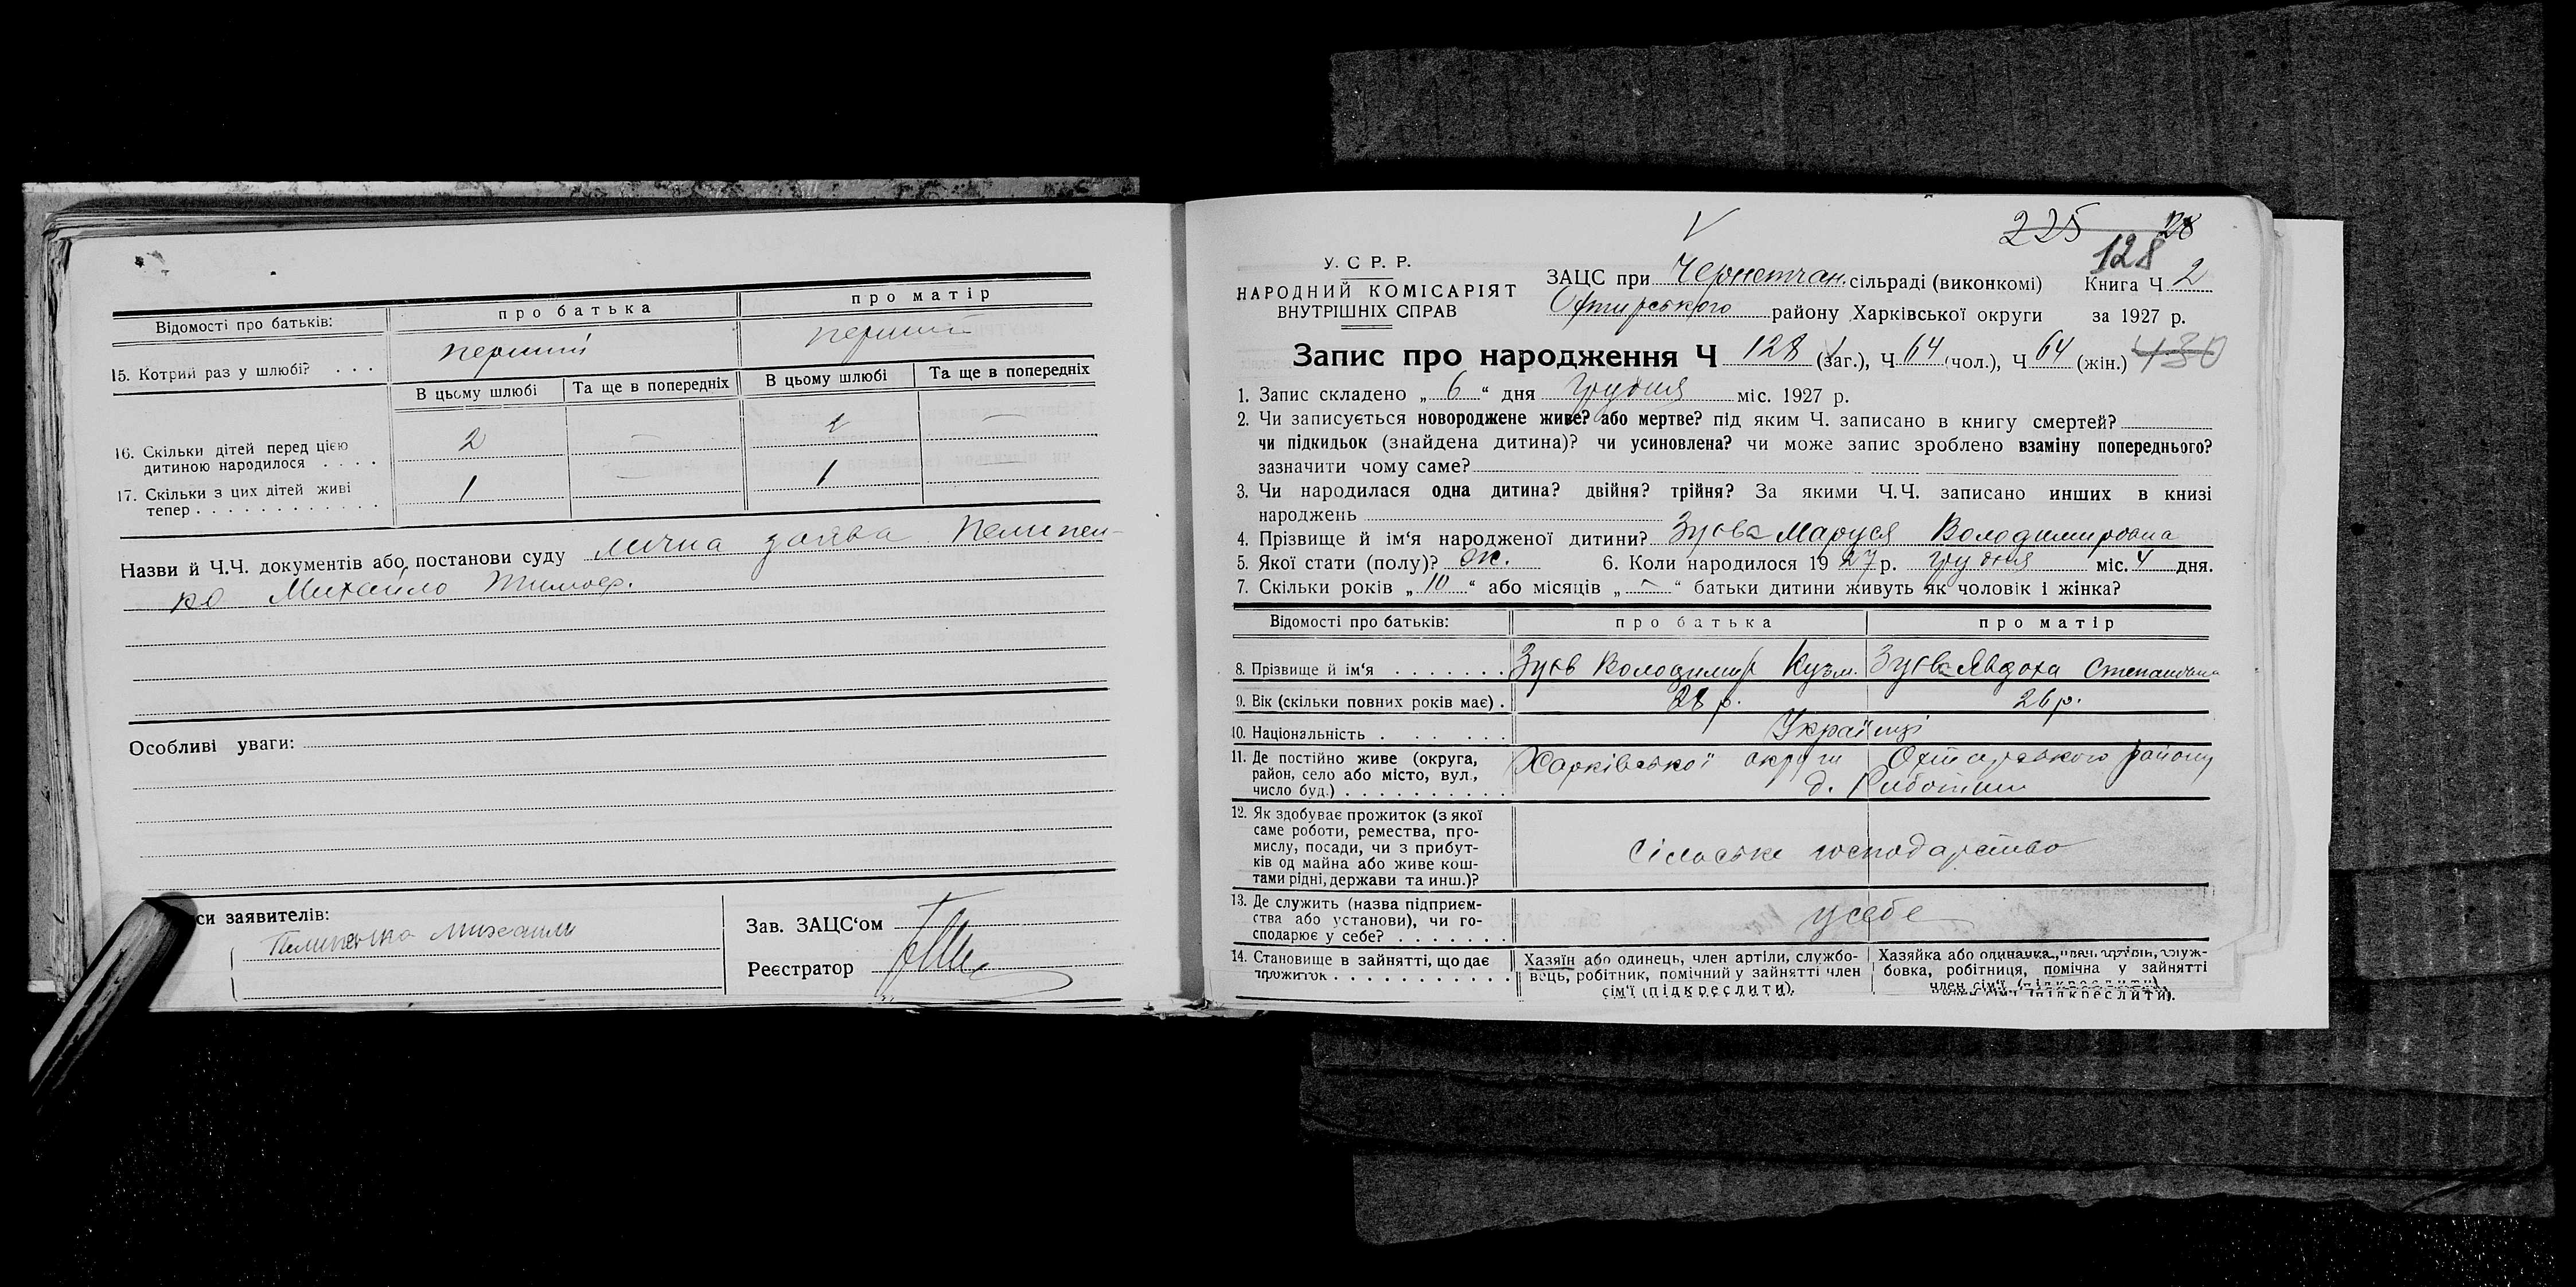 Відомості про батьків:
про батька
про матір
15. Котрий раз у шлюбі? . . .
перший
перший
В цьому шлюбі
Та ще в попередніх
В цьому шлюбі
Та ще в попередніх
16. Скільки дітей перед цією
дитиною народилося . . . .
2
—
2
—
17. Скільки з цих дітей живі
тепер . . . . . . . . . . . . .
1
—
1
—
Назви й Ч.Ч. документів або постанови суду лична заява Пелипен-
ко Михайло Тимоф.
Особливі уваги:
си заявителів:
Пелипенко Михаил
Зав. ЗАЦС‘ом
Реєстратор
225 128
128
У. С Р. Р.
НАРОДНИЙ КОМІСАРІЯТ
ВНУТРІШНІХ СПРАВ
ЗАЦС при Чернетчан. сільраді (виконкомі) Книга Ч 2
Охтирського району Харківської округи за 1927 р.
Запис про народження Ч 128 (заг.), Ч 64 (чол.), Ч 64 (жін.) 430
1. Запис складено „ 6 “ дня грудня міс. 1927 р.
2. Чи записується новороджене живе? або мертве? під яким Ч. записано в книгу смертей?
чи підкидьок (знайдена дитина)? чи усиновлена? чи може запис зроблено взаміну попереднього?
зазначити чому саме?
3. Чи народилася одна дитина? двійня? трійня? За якими Ч.Ч. записано инших в книзі
народжень
4. Прізвище й ім‘я народженої дитини? Зуєва Маруся Володимировна
5. Якої стати (полу)? ж. 6. Коли народилося 19 27 р. грудня міс. 4 дня.
7. Скільки років „ 10 “ або місяців „ – “ батьки дитини живуть як чоловік і жінка?
Відомості про батьків:
про батька
про матір
8. Прізвище й ім‘я . . . . . . .
Зуєв Володимир Кузм.
Зуєва Явдоха Степановна
9. Вік (скільки повних років має) .
28 р.
26 р.
10. Національність . . . . . .
Українці
11. Де постійно живе (округа,
район, село або місто, вул.,
число буд.) . . . . . . . . . .
Харківської округи Охтирського району
12. Як здобуває прожиток (з якої
саме роботи, ремества, про-
мислу, посади, чи з прибут-
ків од майна або живе кош-
тами рідні, держави та инш.)?
Сільське господарство
13. Де служить (назва підприєм-
ства або установи), чи го-
сподарює у себе? . . . . . . .
у себе
14. Становище в зайнятті, що дає
прожиток . . . . . . . . . .
Хазяїн або одинець, член артіли, службо-
вець, робітник, помічний у зайнятті член
сім‘ї (підкреслити).
Хазяйка або одиначка, член артіли, служ-
бовка, робітниця, помічна у зайнятті
член сім‘ї (підкреслити).